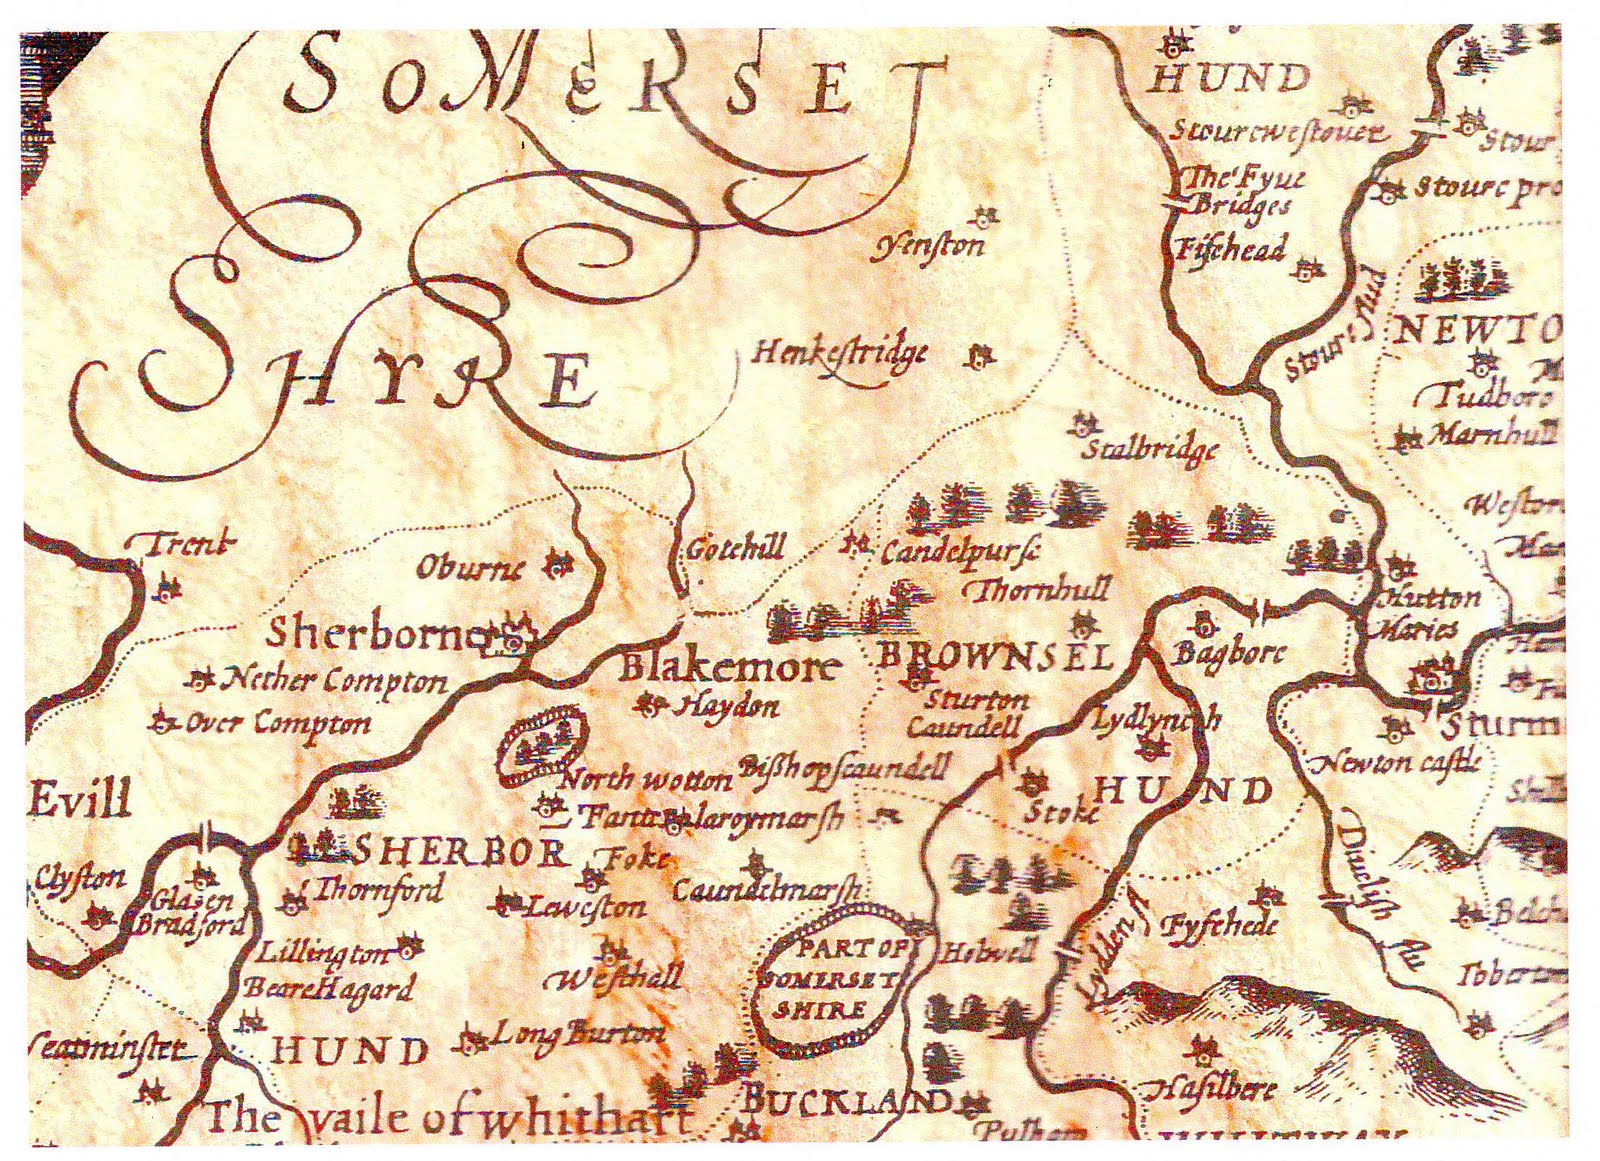 SOMERSET
SHYRE
HUND
Stourcweſtouer
The Fyue
Bridges
Fifehead
Stour
Stoure pro
Yenſton
Stoure flud
NEWTO
Tudboro
Marnhull
Henkeſtridge
Stalbridge
Weſton
Mar
Trent
Oburne
Gotehill
Candelpurſe
Thornhull
Hutton
Maries
Sherborne
Blakemore
BROWNSEL
Bagbore
Nether Compton
Haydon
Sturton
Caundell
Over Compton
Lydlynch
Sturm
Newton caſtle
North wotton
Biſhopſcaundell
Evill
HUND
Stoke
Clyſton
SHERBOR
Foke
Thornford
Caundelmarſh
Leweſton
Bradford
Diuelish flu
Lydden fl
Fyfehede
Belcha
Lillington
PART OF
SOMERSET
SHIRE
Holwell
BeareHagard
Weſthall
Ibberton
HUND
Long Burton
Haſilbere
The vaile of whithart
BUCKLAND
Pulham